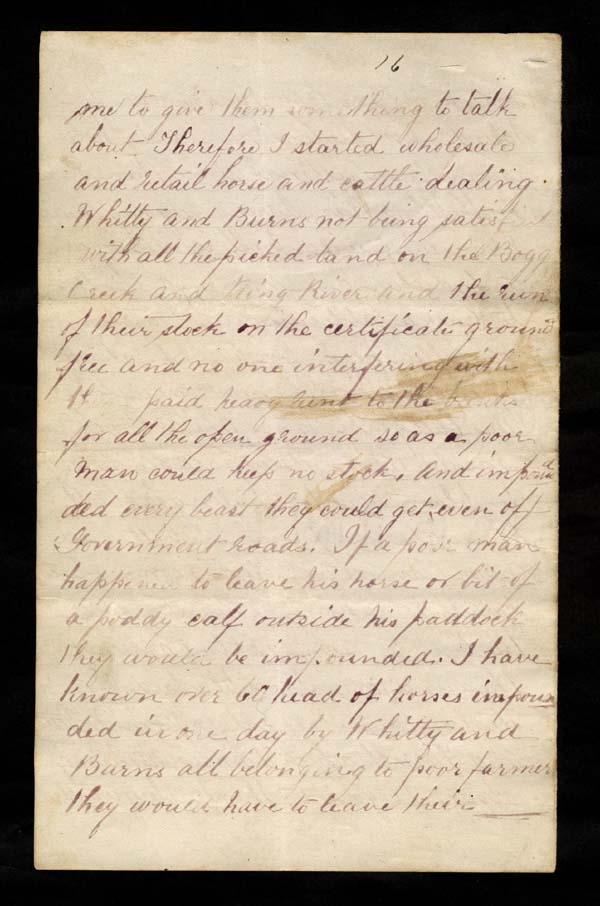 16
me to give them something to talk
about. Therefore I started wholesale
and retail horse and cattle dealing.
Whitty and Burns not being satisfied
with all the picked land on the Bogg
Creek and King River and the run
of their stock on the certificate ground
free and no one interfering with
paid heavy rent to the banks
for all the open ground so as a poor
man could keep no stock, And impoun
ded every beast they could get even off
Government roads. If a poor man
happened to leave his horse or bit of
a poddy calf outside his paddock
they would be impounded. I have
known over 60 head of horses impoun
ded in one day by Whitty and
Burns all belonging to poor farmers
they would have to leave their